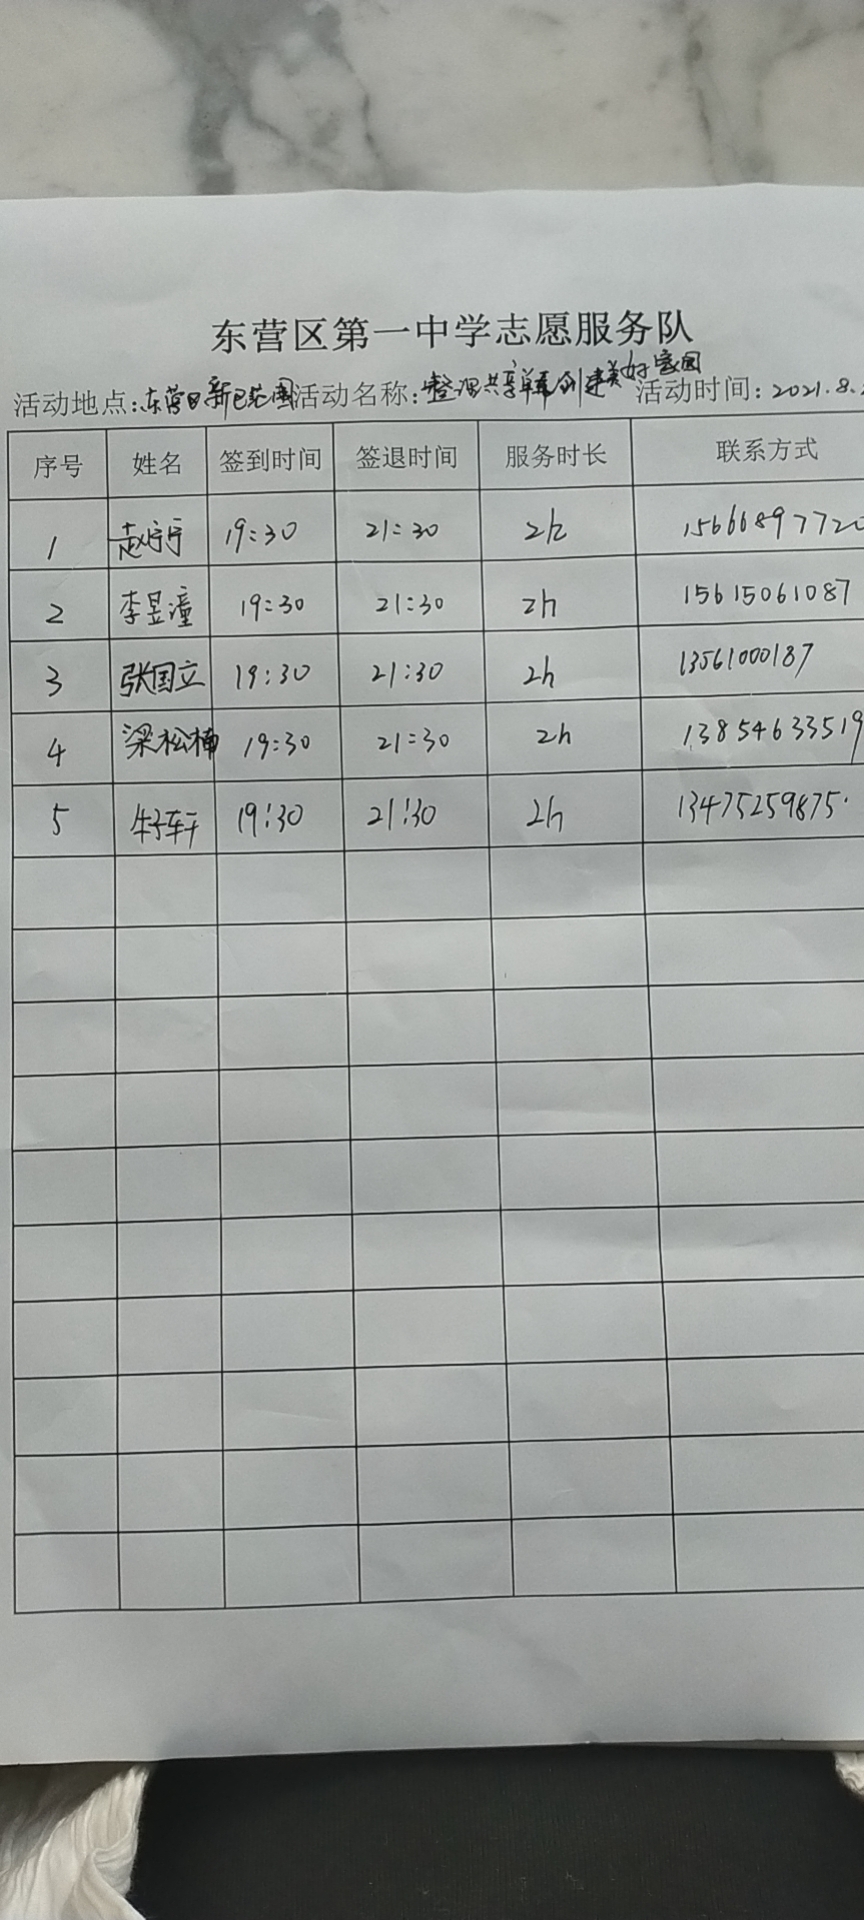 东营区第一中学志愿服务队
活动地点:东营区新区范围 活动名称:整理共享单车创建美好家园 活动时间:2021.8.
序号 姓名 签到时间 签退时间 服务时长 联系方式
1 赵宁宁 19:30 21:30 2h 15666897720
2 李昱潼 19:30 21:30 2h 15615061087
3 张国立 19:30 21:30 2h 13561000187
4 梁松楠 19:30 21:30 2h 13854633519
5 19:30 21:30 2h 13475259875.